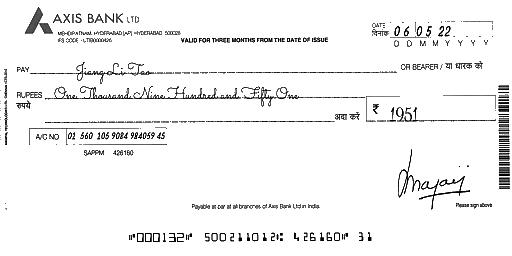 AXIS BANK LTD
MEHDIPATNAM, HYDERABAD [AP] HYDERABAD 500028
IFS CODE - UTIB0000426
VALID FOR THREE MONTHS FROM THE DATE OF ISSUE
DATE
दिनांक 06 05 22
D D M M Y Y Y Y
PAY Jiang Li Tao OR BEARER / या धारक को
RUPEES One Thousand Nine Hundred and Fifty One
रुपये अदा करें ₹ 1951
A/C NO 01 560 105 9084 984059 45
SAPPM 426160
Payable at par at all branches of Axis Bank Ltd in India.
Please sign above
"000132" 500211012: 426160" 31